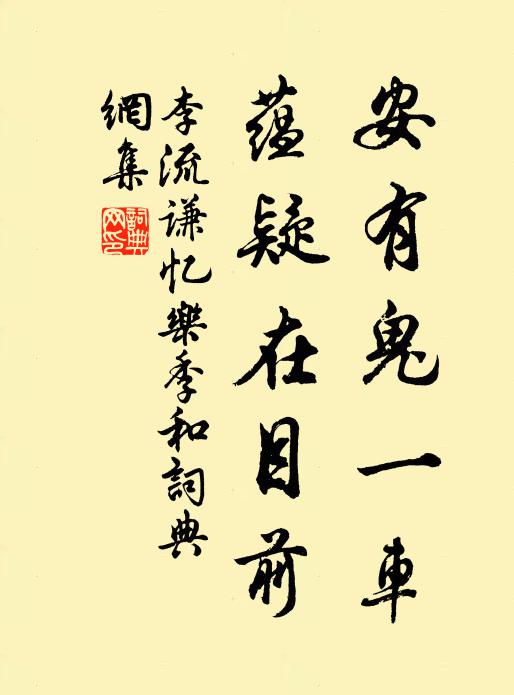 安有鬼一車
蕴疑在目前
李流谦忆樂季和詞典
網集
詞典
网印